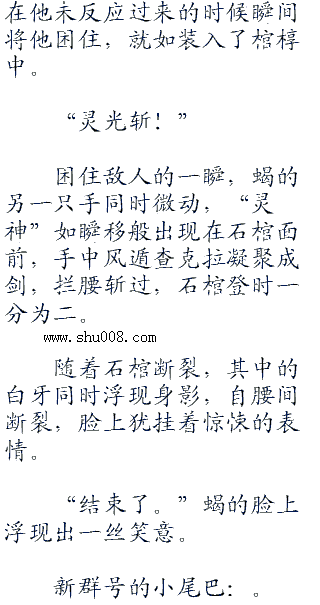 在他未反应过来的时候瞬间
将他困住，就如装入了棺椁
中。
“灵光斩！”
困住敌人的一瞬，蝎的
另一只手同时微动，“灵
神”如瞬移般出现在石棺面
前，手中风遁查克拉凝聚成
剑，拦腰斩过，石棺登时一
分为二。
www.shu008.com
随着石棺断裂，其中的
白牙同时浮现身影，自腰间
断裂，脸上犹挂着惊悚的表
情。
“结束了。”蝎的脸上
浮现出一丝笑意。
新群号的小尾巴：。